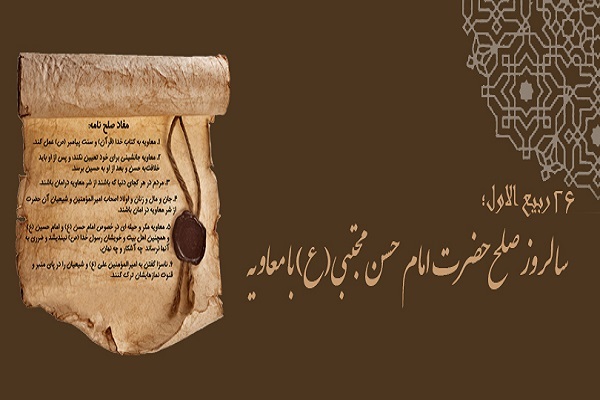 ۲۶ ربیع الاول؛
سالروز صلح حضرت امام حسن مجتبی (ع) با معاویه
مفاد صلح نامه:
۱. معاویه به کتاب خدا (قرآن) و سنت پیامبر (ص) عمل کند.
۲. معاویه جانشینی برای خود تعیین نکند و پس از او باید
خلافت به حسن و بعد از او به حسین برسد.
۳. مردم در هر کجای دنیا که باشند از شر معاویه درامان باشند.
۴. جان و مال و زنان و اولاد اصحاب امیرالمؤمنین و شیعیان آن حضرت
از شر معاویه در امان باشند.
۵. معاویه مکر و حیله ای در خصوص امام حسن (ع) و امام حسین (ع)
و همچنین اهل بیت و خویشان رسول خدا (ص) نیندیشد و ضرری به
آنها نرساند؛ چه آشکار و چه نهان.
۶. ناسزا گفتن به امیرالمؤمنین علی (ع) و شیعیان را در پای منبر و
قنوت نمازهایشان ترک کنند.